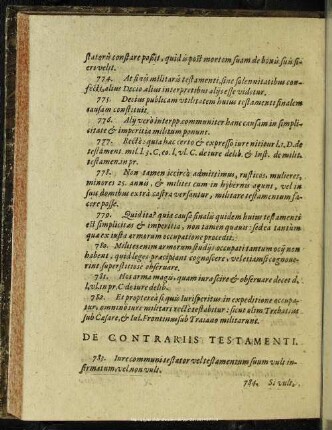 statorũ constare possit, quid is post mortem suam de bonis suis fieri velit.
774. At si vis militaris testamenti, sine solennitatibus confecti, alius Decio alius interpretibus alijs esse videtur.
775. Decius publicam utilitatem huius testamenti finalem
causam constituit.
776. Alij verò interpp. communiter hanc causam in simplicitate & imperitia militum ponunt.
777. Rectè: quia hac certo & expresso iure nititur l. 1. D. de
testament. mil. l. 3. C. eo. l. vl. C. de iure delib. & Inst. de milit.
testamen. in pr.
778. Non tamen iccircò admittimus, rusticos, mulieres,
minores 25. annis, & milites cum in hybernis agunt, vel in
suis domibus extra castra versantur, militare testamentum facere posse.
779. Quid ita? quia causa finalis quidem huius testamenti
est simplicitas & imperitia, non tamen quævis: sed ea tantùm
quæ ex iusta armorum occupatione procedit.
780. Milites enim armorum studijs occupati tantum ocij non
habent, quid leges præcipiant cognoscere, vel etiamsi cognoverint, superstitiosè observare.
781. Nec arma magis, quàm iura scire & observare decet d.
l. vl. in pr. C de iure delib.
782. Et propterea si quis Iurisperitus in expeditione occupatur, omnino iure militari rectè testabitur: sicut olim Trebatius
sub Cæsare, & Iul. Frontinus sub Traiano militarunt.
DE CONTRARIIS TESTAMENTI.
783. Iure communi testator vel testamentum suum vult infirmatum, vel non vult.
784. Si vult,